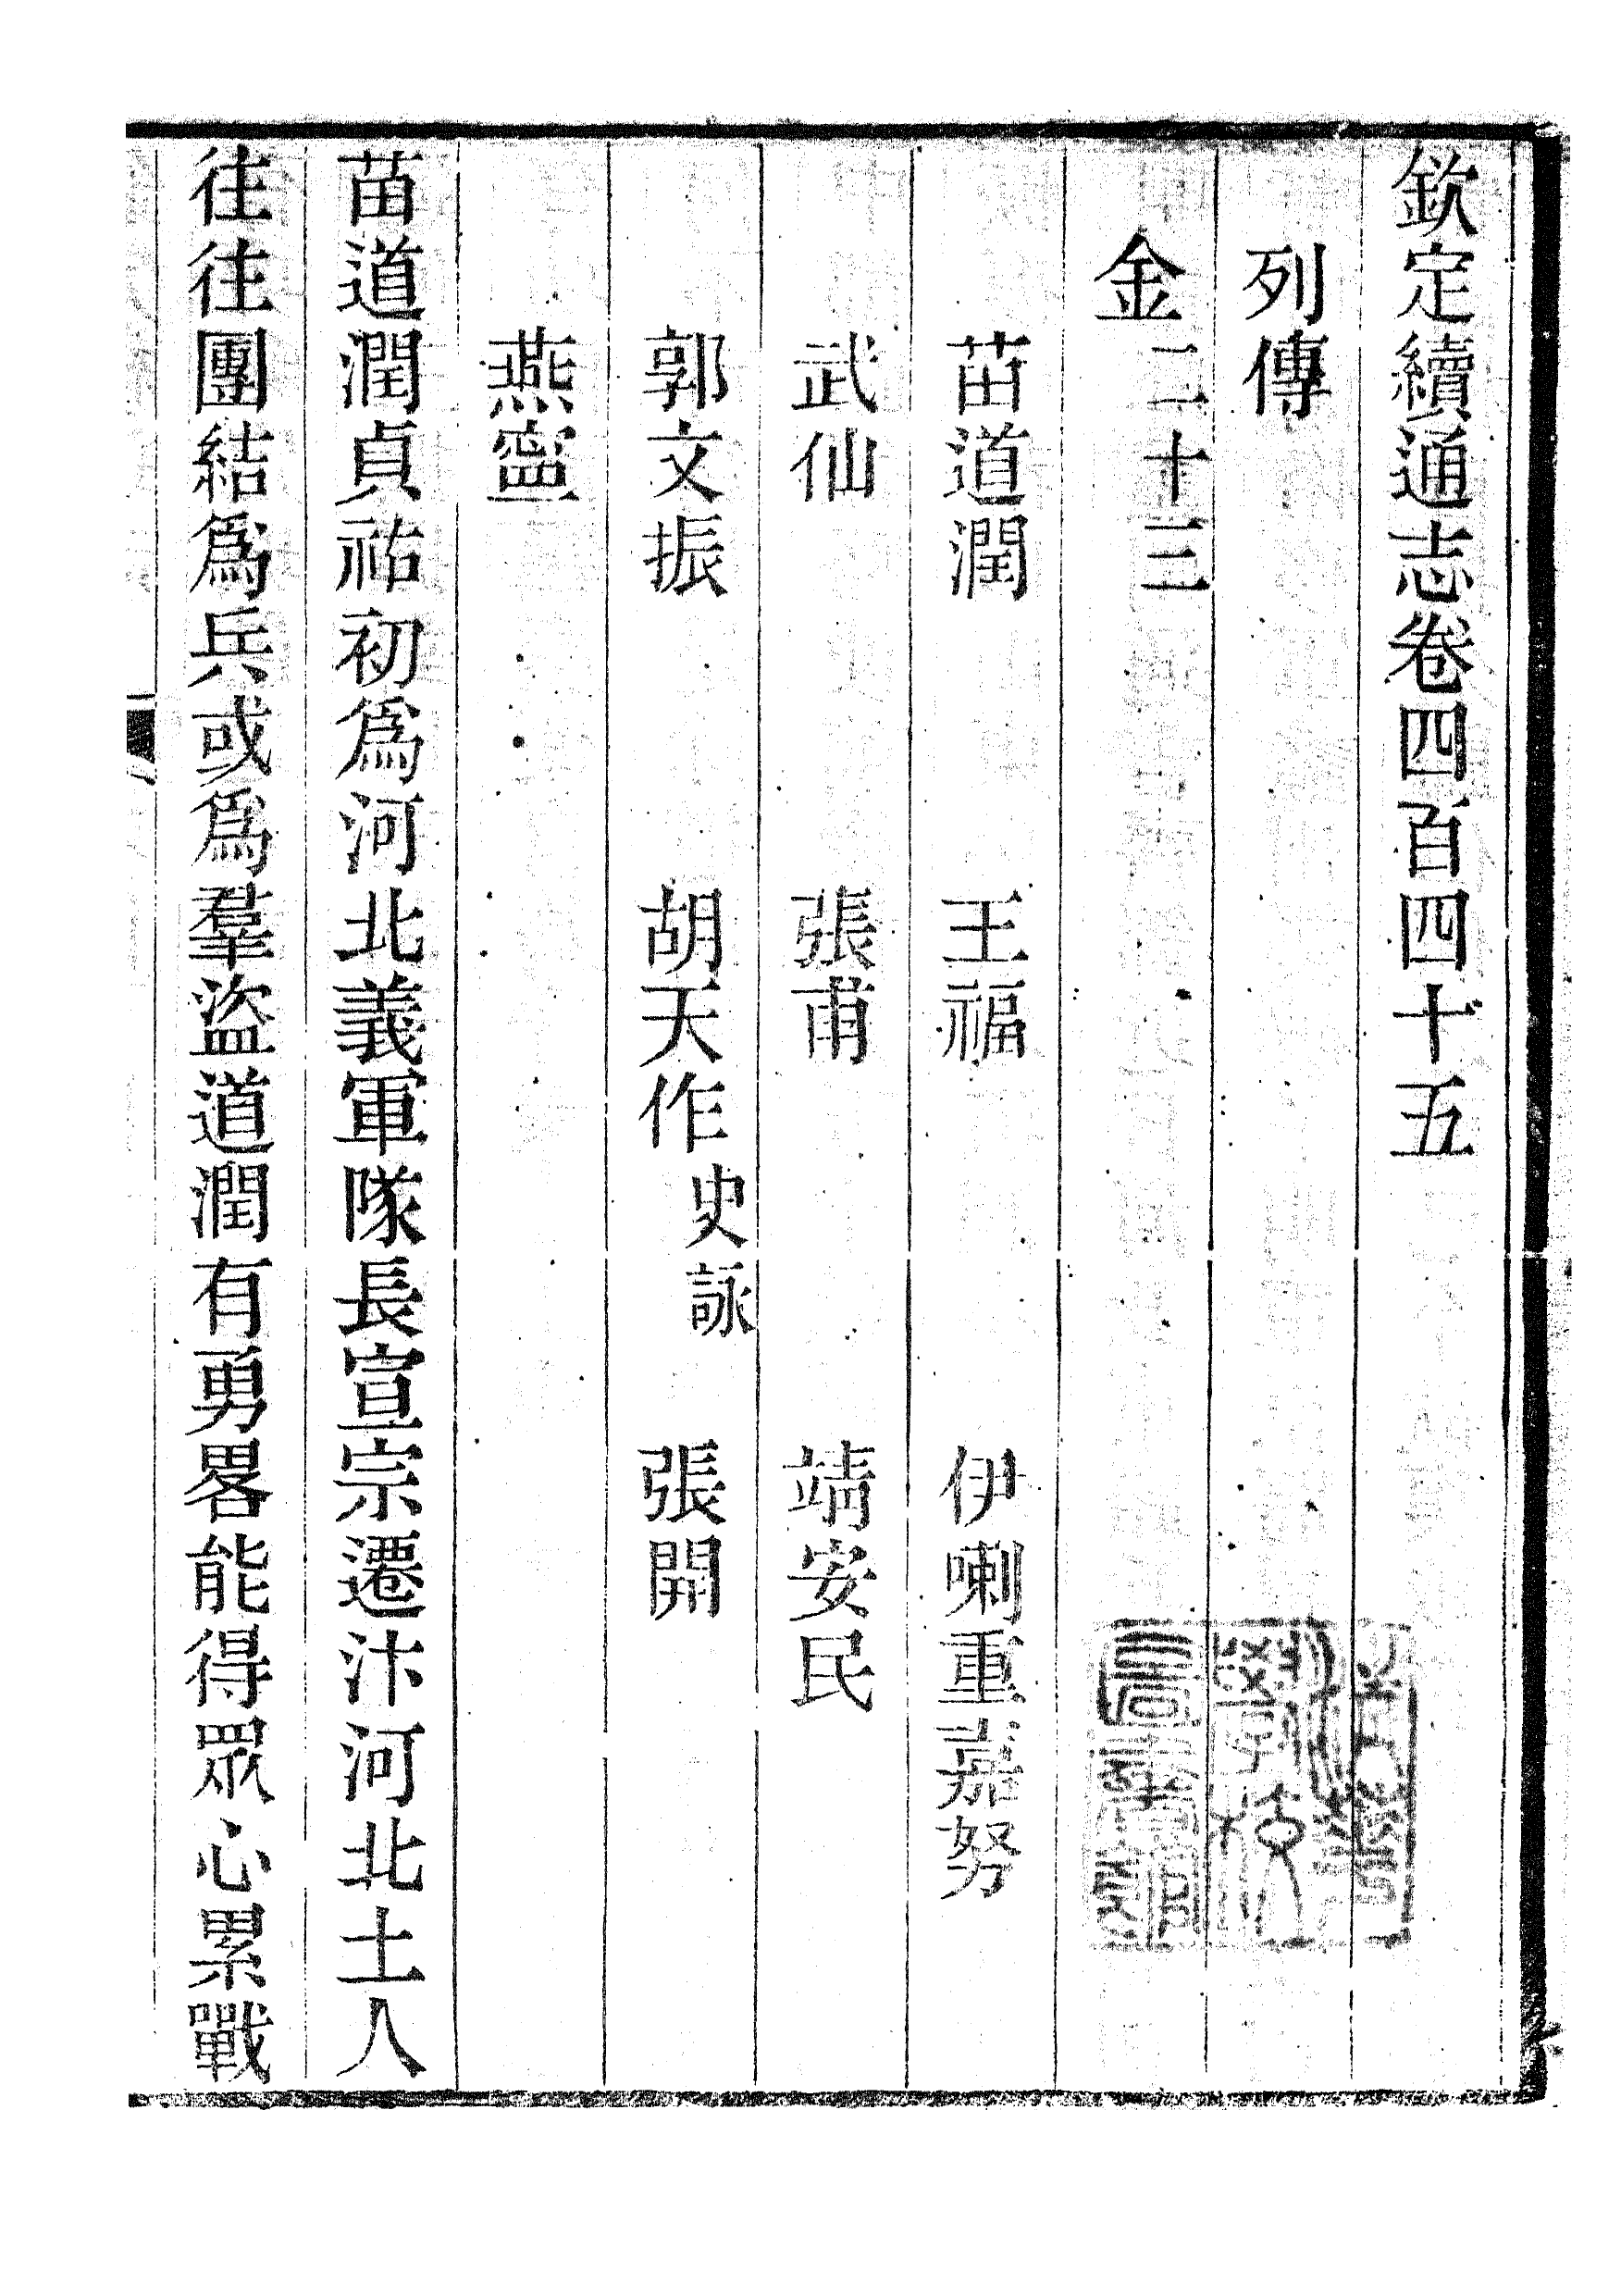 欽定續通志卷四百四十五
列傳
金二十三
苗道潤　王福　伊喇重嘉努
武仙　張甫　靖安民
郭文振　胡天作史詠　張開
燕寧
苗道潤貞祐初爲河北義軍隊長宣宗遷汴河北土人
往往團結爲兵或爲羣盜道潤有勇畧能得眾心累戰